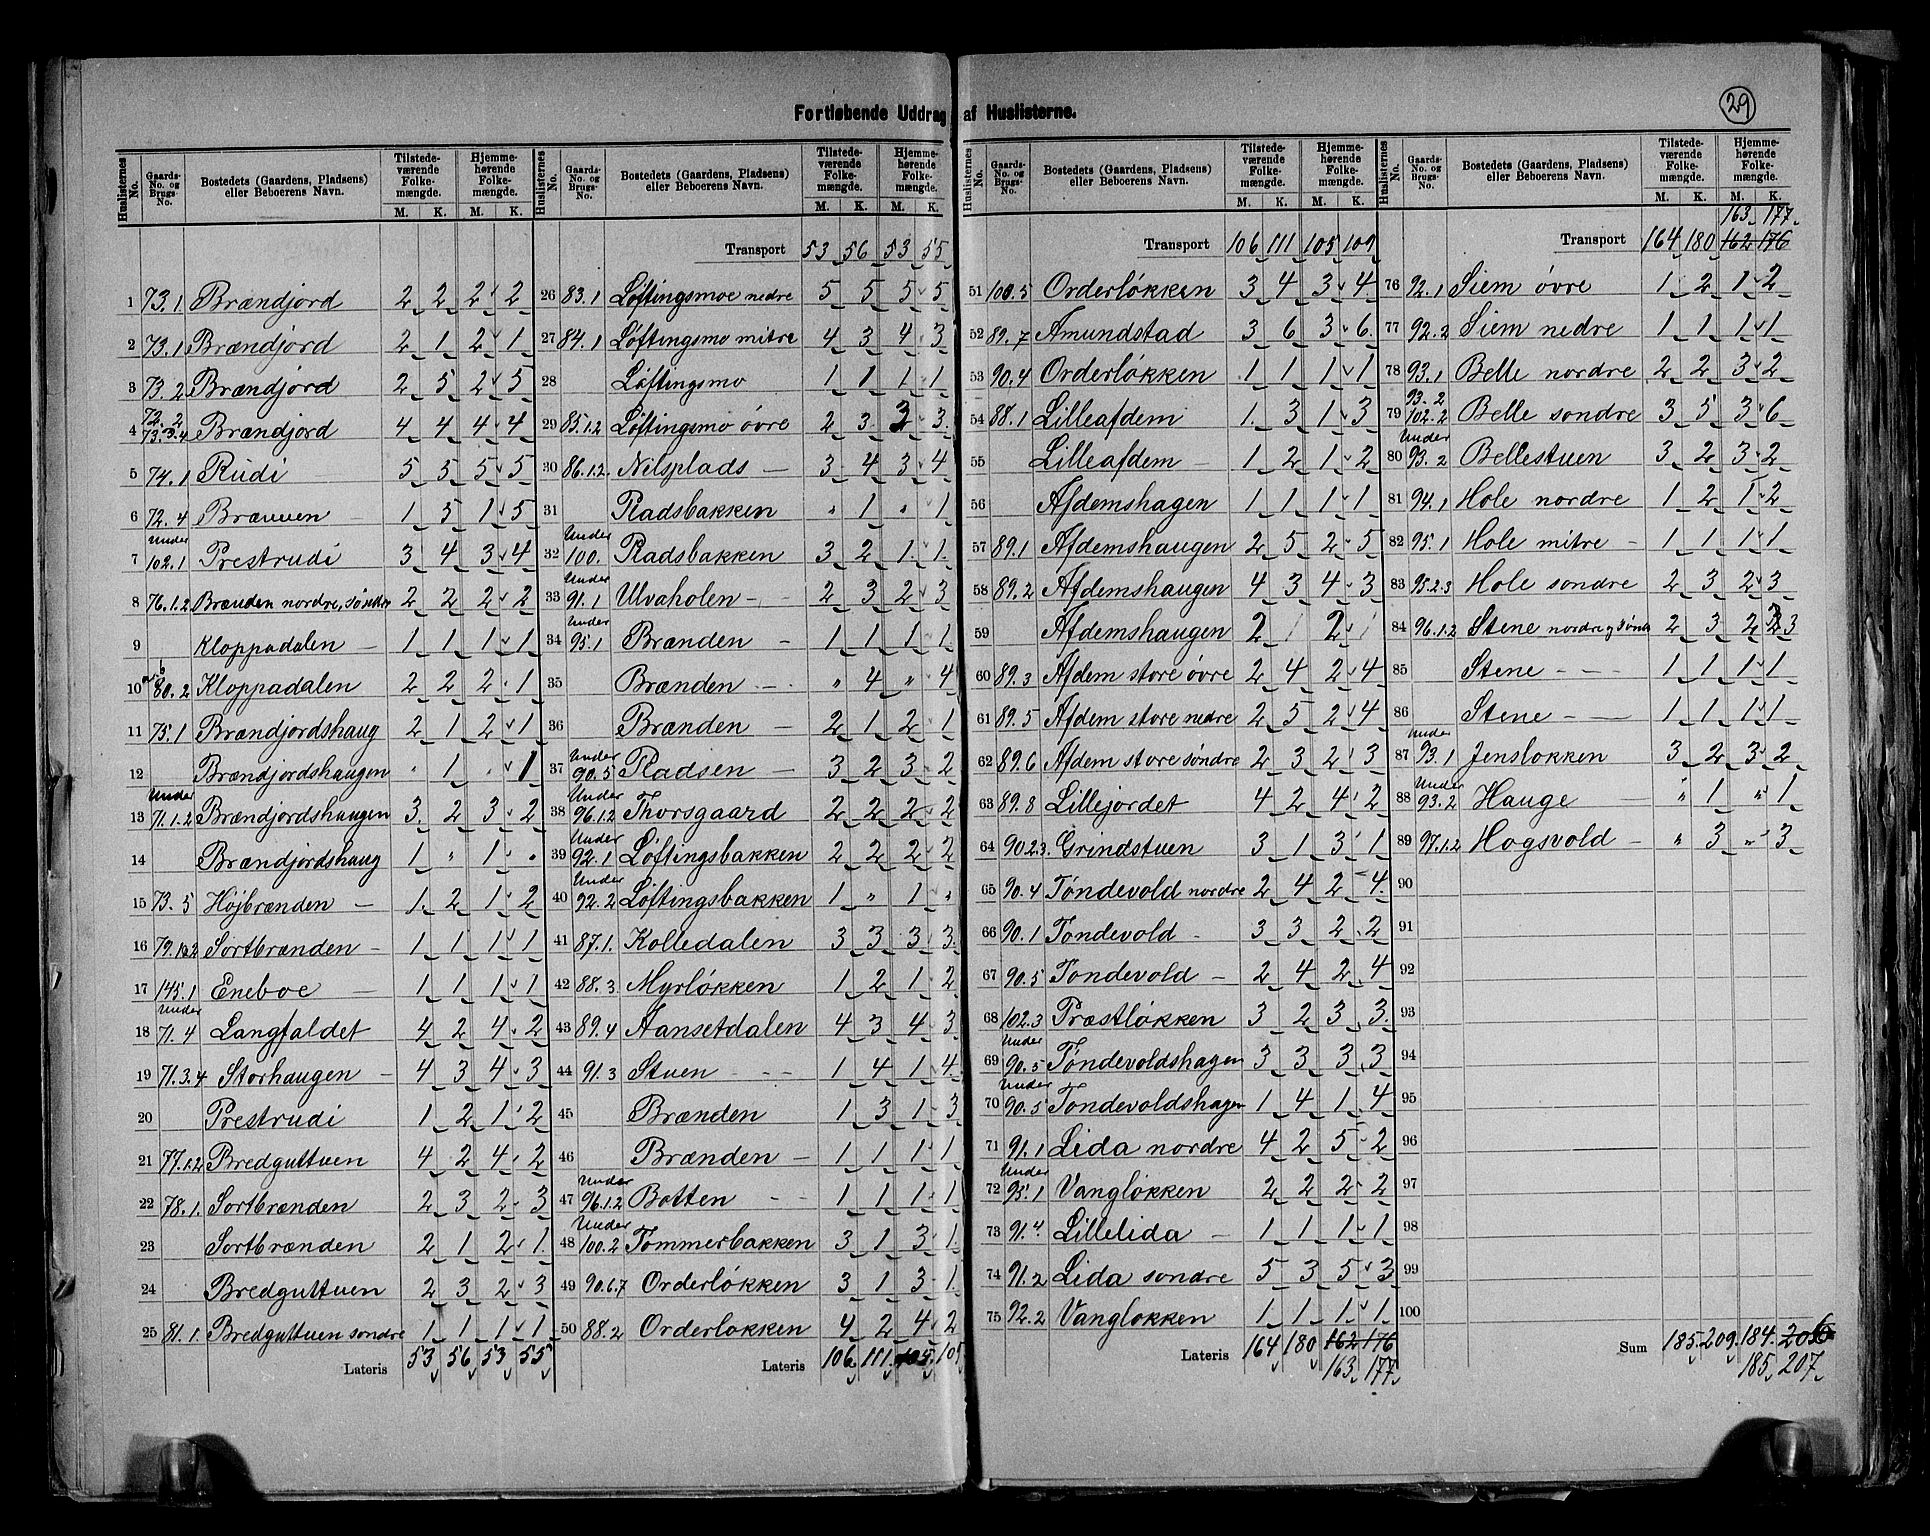 Fortløbende Uddrag af Huslisterne.
29
Huslisternes No. Gaards-No. og Brugs-No. Bostedets (Gaardens, Pladsens) eller Beboerens Navn. Tilstedeværende Folkemængde. M. K. Hjemmehørende Folkemængde. M. K.
1 73.1 Brændjord 2 2 2 2
2 73.1 Brændjord 2 1 2 1
3 73.2 Brændjord 2 5 2 5
4 72.2 73.3.4 Brændjord 4 4 4 4
5 74.1 Rudi 5 5 5 5
6 72.4 Brænnen 1 5 1 5
7 Under 102.1 Prestrudi 3 4 3 4
8 76.1.2 Brænden nordre, søndre 2 2 2 2
9 Kloppadalen 1 1 1 1
10 80.2 Kloppadalen 2 2 2 1
11 75.1 Brændjordshaug 2 1 2 1
12 Brændjordshaugen " 1 " 1
13 Under 71.1.2 Brændjordshaugen 3 2 3 2
14 Brændjordshaug 1 " 1 "
15 73.5 Højbrænden 1 2 1 2
16 79.1.2 Sortbrænden 1 1 1 1
17 145.1 Eneboe 1 1 1 1
18 Under 71.4 Langfaldet 4 2 4 2
19 71.3.4 Storhaugen 4 3 4 3
20 Prestrudi 1 2 1 2
21 77.1.2 Bredguttuen 4 2 4 2
22 78.1. Sortbrænden 2 3 2 3
23 Sortbrænden 2 1 2 1
24 Bredguttuen 2 3 2 3
25 81.1. Bredguttuen søndre 1 1 1 1
Lateris 53 56 53 55
Huslisternes No. Gaards-No. og Brugs-No. Bostedets (Gaardens, Pladsens) eller Beboerens Navn. Tilstedeværende Folkemængde. M. K. Hjemmehørende Folkemængde. M. K.
Transport 53 56 53 55
26 83.1 Løftingsmoe nedre 5 5 5 5
27 84.1 Løftingsmo mitre 4 3 4 3
28 Løftingsmo 1 1 1 1
29 85.1.2 Løftingsmo øvre 2 3 3 3
30 86.1.2. Nilsplads 3 4 3 4
31 Radsbakken " 1 " 1
32 Under 100. Radsbakken 3 2 1 1
33 Under 91.1 Ulvaholen 2 3 2 3
34 Under 95.1 Brænden 1 1 1 1
35 Brænden " 4 " 4
36 Brænden 2 1 2 1
37 Under 90.5 Radsen 3 2 3 2
38 Under 96.1.2 Thorsgaard 2 2 2 2
39 Under 92.1 Løftingsbakken 2 2 2 2
40 Under 92.2 Løftingsbakken 1 " 1 "
41 87.1. Kolledalen 3 3 3 3
42 88.3. Myrløkken 1 2 1 2
43 89.4 Aansetdalen 4 3 4 3
44 91.3 Stuen 1 4 1 4
45 Brænden 1 3 1 3
46 Brænden 1 1 1 1
47 Under 96.1.2 Botten 1 1 1 1
48 Under 100.2 Tømmerbakken 3 1 3 1
49 90.6.7 Orderløkken 3 1 3 1
50 88.2 Orderløkken 4 2 4 2
Lateris 106 111 105 109
Huslisternes No. Gaards-No. og Brugs-No. Bostedets (Gaardens, Pladsens) eller Beboerens Navn. Tilstedeværende Folkemængde. M. K. Hjemmehørende Folkemængde. M. K.
Transport 106 111 105 109
51 100.5 Orderløkken 3 4 3 4
52 89.7 Amundstad 3 6 3 6
53 90.4 Orderløkken 1 1 1 1
54 88.1 Lilleafdem 1 3 1 3
55 Lilleafdem 1 2 1 2
56 Afdemshagen 1 1 1 1
57 89.1 Afdemshaugen 2 5 2 5
58 89.2 Afdemshaugen 4 3 4 3
59 Afdemshaugen 2 1 2 1
60 89.3 Afdem store øvre 2 4 2 4
61 89.5 Afdem store nedre 2 5 2 4
62 89.6 Afdem store søndre 2 3 2 3
63 89.8 Lillejordet 4 2 4 2
64 90.2.3. Grindstuen 3 1 3 1
65 90.4 Tøndevold nordre 2 4 2 4
66 90.1 Tøndevold 3 3 2 2
67 90.5 Tøndevold 2 4 2 4
68 102.3 Præstløkken 3 2 3 3
69 Under 90.5 Tøndevoldshagen 3 3 3 3
70 Under 90.5 Tøndevoldshagen 1 4 1 4
71 91.1 Lida nordre 4 2 5 2
72 Under 95.1 Vangløkken 2 2 2 2
73 91.4 Lillelida 1 1 1 1
74 91.2 Lida søndre 5 3 5 3
75 92.2 Vangløkken 1 1 1 1
Lateris 164 180 162 176
163 177
Huslisternes No. Gaards-No. og Brugs-No. Bostedets (Gaardens, Pladsens) eller Beboerens Navn. Tilstedeværende Folkemængde. M. K. Hjemmehørende Folkemængde. M. K.
163 177
Transport 164 180 162 176
76 92.1 Siem øvre 1 2 1 2
77 92.2 Siem nedre 1 1 1 1
78 93.1 Belle nordre 2 2 3 2
79 93.2 102.2 Belle søndre 3 5 3 6
80 Under 93.2 Bellestuen 3 2 3 2
81 94.1 Hole nordre 1 2 1 2
82 95.1 Hole mitre 1 1 1 1
83 95.2.3 Hole søndre 2 3 2 3
84 96.1.2 Stene nordre og sønd. 2 3 2 3
85 Stene 1 1 1 1
86 Stene 1 1 1 1
87 Under 93.1 Jensløkken 3 2 3 2
88 Under 93.2 Hauge " 1 " 1
89 97.1.2 Hogsvold " 3 " 3
90
91
92
93
94
95
96
97
98
99
100
Sum 185 209 184 206
185 207